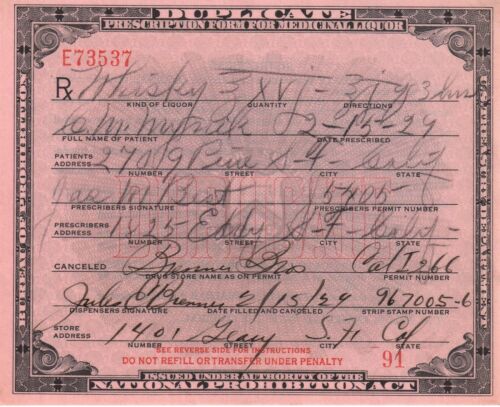 DUPLICATE
PRESCRIPTION FORM FOR MEDICINAL LIQUOR
E73537
BUREAU OF PROHIBITION
U.S. TREASURY DEPARTMENT
Rx Whisky ℥ XVI - 3 hrs
KIND OF LIQUOR QUANTITY DIRECTIONS
2-15-29
FULL NAME OF PATIENT DATE PRESCRIBED
PATIENTS ADDRESS 2709 Pine S-F- Calif
NUMBER STREET CITY STATE
5405
PRESCRIBERS SIGNATURE PRESCRIBERS PERMIT NUMBER
PRESCRIBERS ADDRESS 1825 Eddy S-F- Calif-
NUMBER STREET CITY STATE
CANCELED Brenner Bros Cal I 266
DRUG STORE NAME AS ON PERMIT PERMIT NUMBER
Jules Brenner 2/15/29 967005-6
DISPENSERS SIGNATURE DATE FILLED AND CANCELED STRIP STAMP NUMBER
STORE ADDRESS 1401 Geary S F. Cal
NUMBER STREET CITY STATE
SEE REVERSE SIDE FOR INSTRUCTIONS
DO NOT REFILL OR TRANSFER UNDER PENALTY 91
ISSUED UNDER AUTHORITY OF THE
NATIONAL PROHIBITION ACT